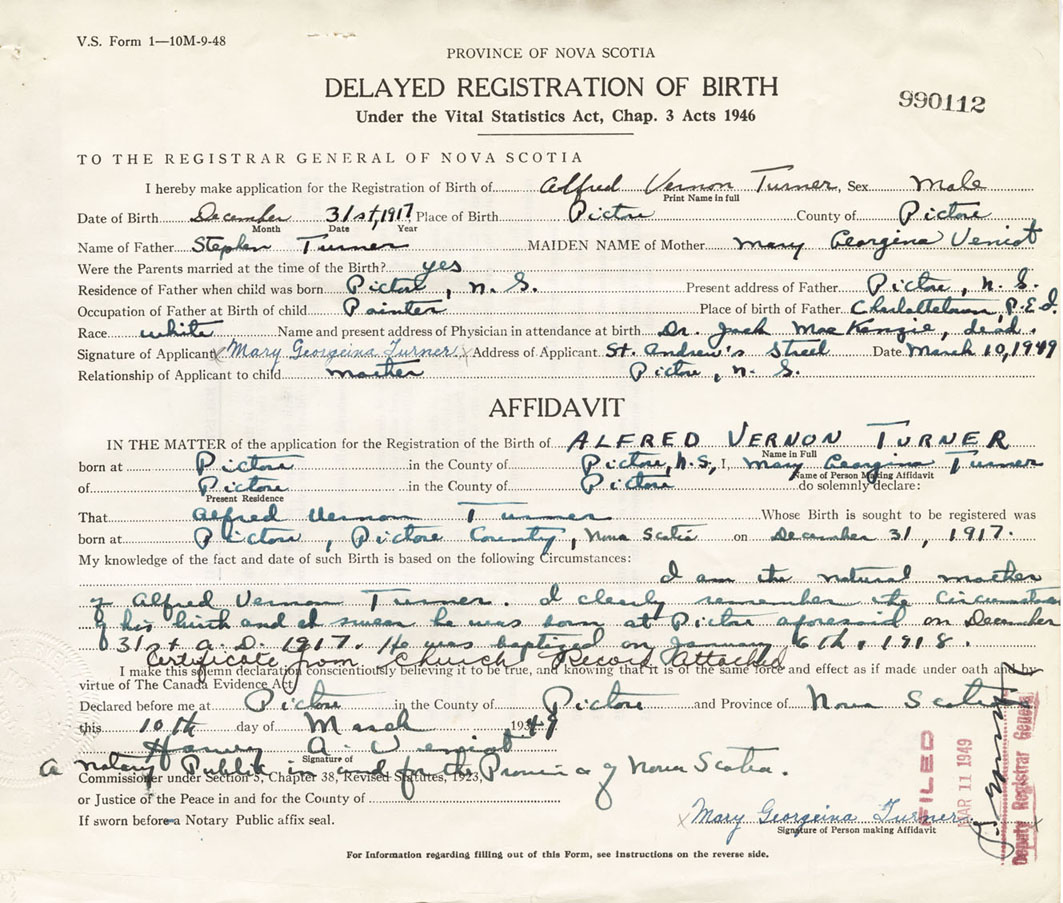 V.S. Form 1—10M-9-48
PROVINCE OF NOVA SCOTIA
DELAYED REGISTRATION OF BIRTH
990112
Under the Vital Statistics Act, Chap. 3 Acts 1946
TO THE REGISTRAR GENERAL OF NOVA SCOTIA
I hereby make application for the Registration of Birth of Alfred Vernon Turner, Sex Male
Print Name in full
Date of Birth December 31st, 1917 Place of Birth Pictou County of Pictou
Month Date Year
Name of Father Stephen Turner MAIDEN NAME of Mother Mary Georgina Veniot
Were the Parents married at the time of the Birth? yes
Residence of Father when child was born Pictou, N. S. Present address of Father Pictou, N. S.
Occupation of Father at Birth of child Painter Place of birth of Father Charlottetown, P.E.I.
Race white Name and present address of Physician in attendance at birth Dr. Jack MacKenzie, dead.
Signature of Applicant x Mary Georgeina Turner x Address of Applicant St. Andrew's Street Date March 10, 1949
Relationship of Applicant to child mother Pictou, N. S.
AFFIDAVIT
IN THE MATTER of the application for the Registration of the Birth of ALFRED VERNON TURNER
Name in Full
born at Pictou in the County of Pictou, N.S., I, Mary Georgina Turner
Name of Person Making Affidavit
of Pictou in the County of Pictou do solemnly declare:
Present Residence
That Alfred Vernon Turner Whose Birth is sought to be registered was
born at Pictou, Pictou County, Nova Scotia on December 31, 1917.
My knowledge of the fact and date of such Birth is based on the following Circumstances:
I am the natural mother
of Alfred Vernon Turner. I clearly remember the circumstances
of his birth and swear he was born at Pictou aforesaid on December
31st A.D. 1917. He was baptized on January 6th, 1918.
Certificate from Church Record Attached
I make this solemn declaration conscientiously believing it to be true, and knowing that it is of the same force and effect as if made under oath and by
virtue of The Canada Evidence Act
Declared before me at Pictou in the County of Pictou and Province of Nova Scotia
this 10th day of March 1949
Harvey A. Veniot
Signature of
A Notary Public in and for the Province of Nova Scotia.
Commissioner under Section 5, Chapter 38, Revised Statutes, 1923,
or Justice of the Peace in and for the County of
If sworn before a Notary Public affix seal.
x Mary Georgeina Turner x
Signature of Person making Affidavit
FILED
MAR 11 1949
Deputy Registrar General
For Information regarding filling out of this Form, see Instructions on the reverse side.